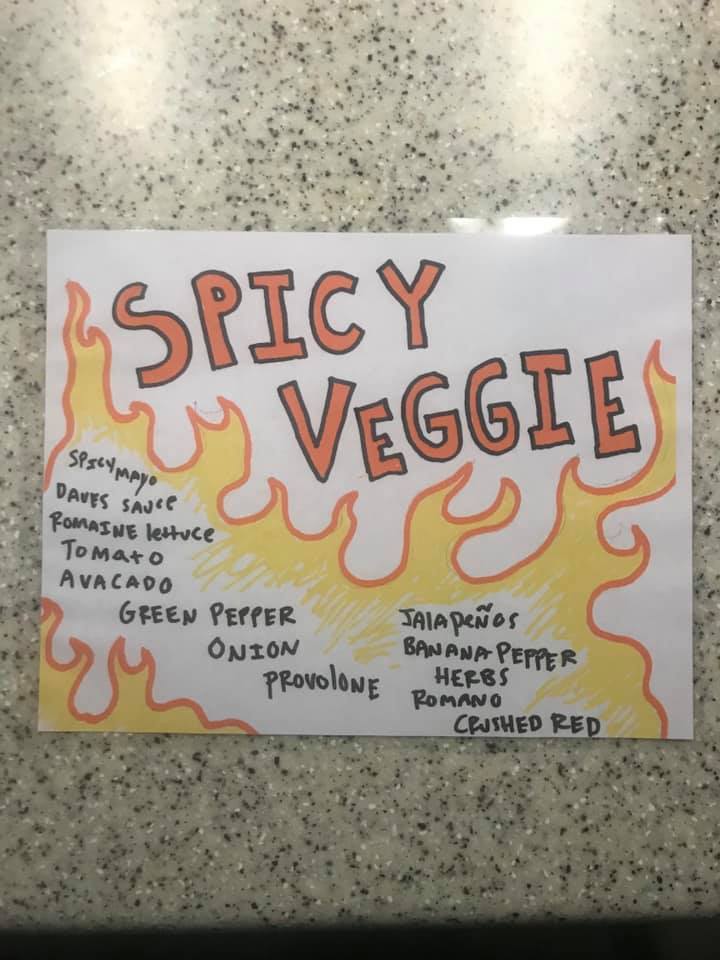 SPICY
VEGGIE
SPICY MAYO
DAVES SAUCE
ROMAINE lettuce
TOMATO
AVACADO
GREEN PEPPER
ONION
PROVOLONE
JALAPEÑOS
BANANA PEPPER
HERBS
ROMANO
CRUSHED RED